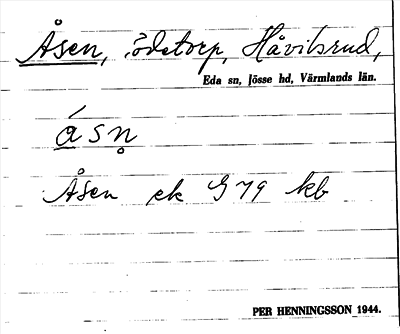 Åsen, ödetorp, Håvilsrud,
Eda sn, Jösse hd, Värmlands län.
ásn̥
Åsen ek G 79 kb
PER HENNINGSSON 1944.